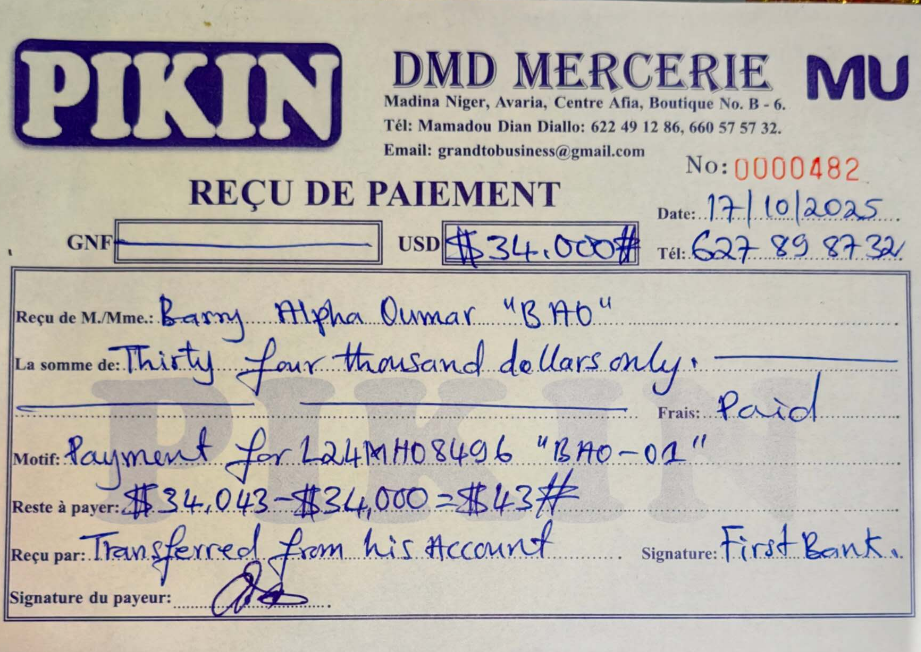 PIKIN
DMD MERCERIE
MU
Madina Niger, Avaria, Centre Afia, Boutique No. B - 6.
Tél: Mamadou Dian Diallo: 622 49 12 86, 660 57 57 32.
Email: grandtobusiness@gmail.com
No: 0000482
REÇU DE PAIEMENT
Date: 17/10/2025
GNF USD $34.000#
Tél: 627 89 87 32
Reçu de M./Mme.: Barry Alpha Oumar "BAO"
La somme de: Thirty four thousand dollars only.
Frais: Paid
Motif: Payment for L24MH08496 "BAO-01"
Reste à payer: $34,043-$34,000=$43#
Reçu par: Transferred from his Account Signature: First Bank.
Signature du payeur:
PIKIN